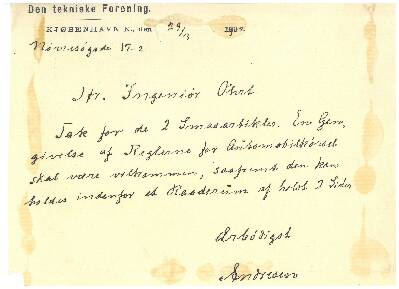 Den tekniske Forening.
KJØBENHAVN K., den 29/3 190
Nørresøgade 17-2
Hr. Ingeniør Ohrt
Tak for de 2 Smaaartikler. En Gen,
givelse af Reglerne for Automobilkørsel
skal være velkommen, saafremt den kan
holdes indenfor et Raaderum af helst 2 Sider
Ærbødigst
Andresen